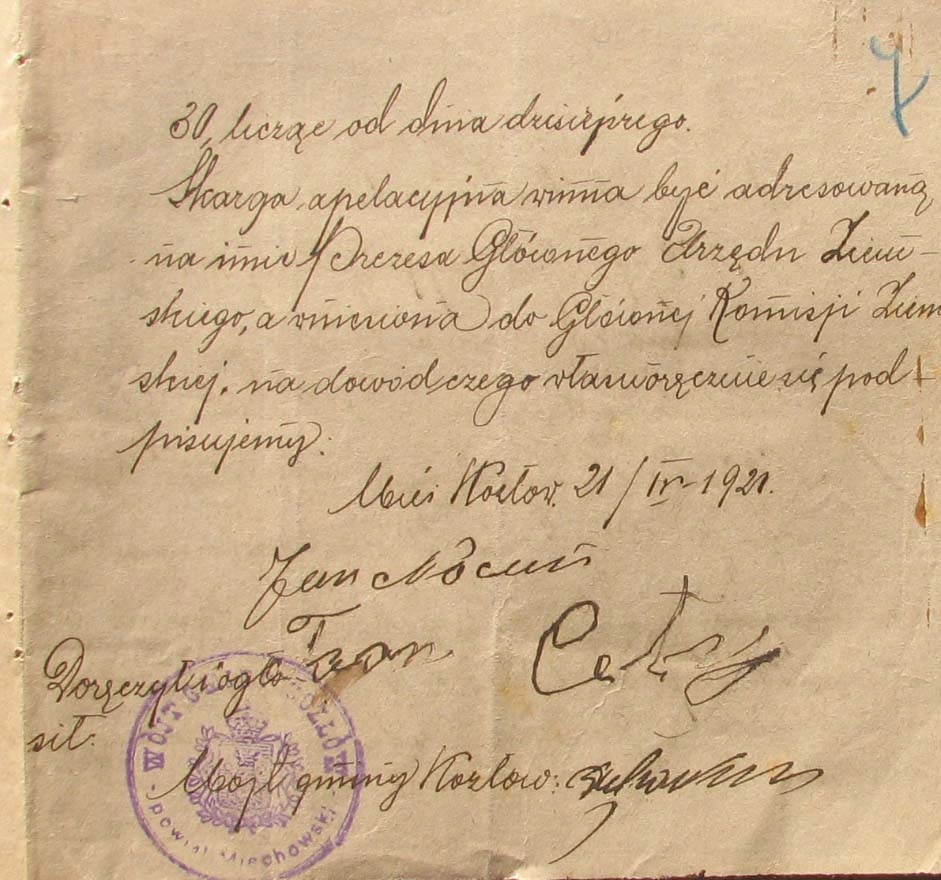 7
30, licząc od dnia dzisiejszego.
Skarga apelacyjna winna być adresowaną
na imię Prezesa Głównego Urzędu Ziem-
skiego, a wniesiona do Głównej Komisji Ziem
skiej. na dowód czego własnoręcznie się pod-
pisujemy.
Wieś Kozłow. 21/IV-1921.
Jan Nocuń
Jan Cały
Doręczył i ogło-
sił.
Wójt gminy Kozłow:
WÓJT GMINY KOZŁÓW
powiat Miechowski